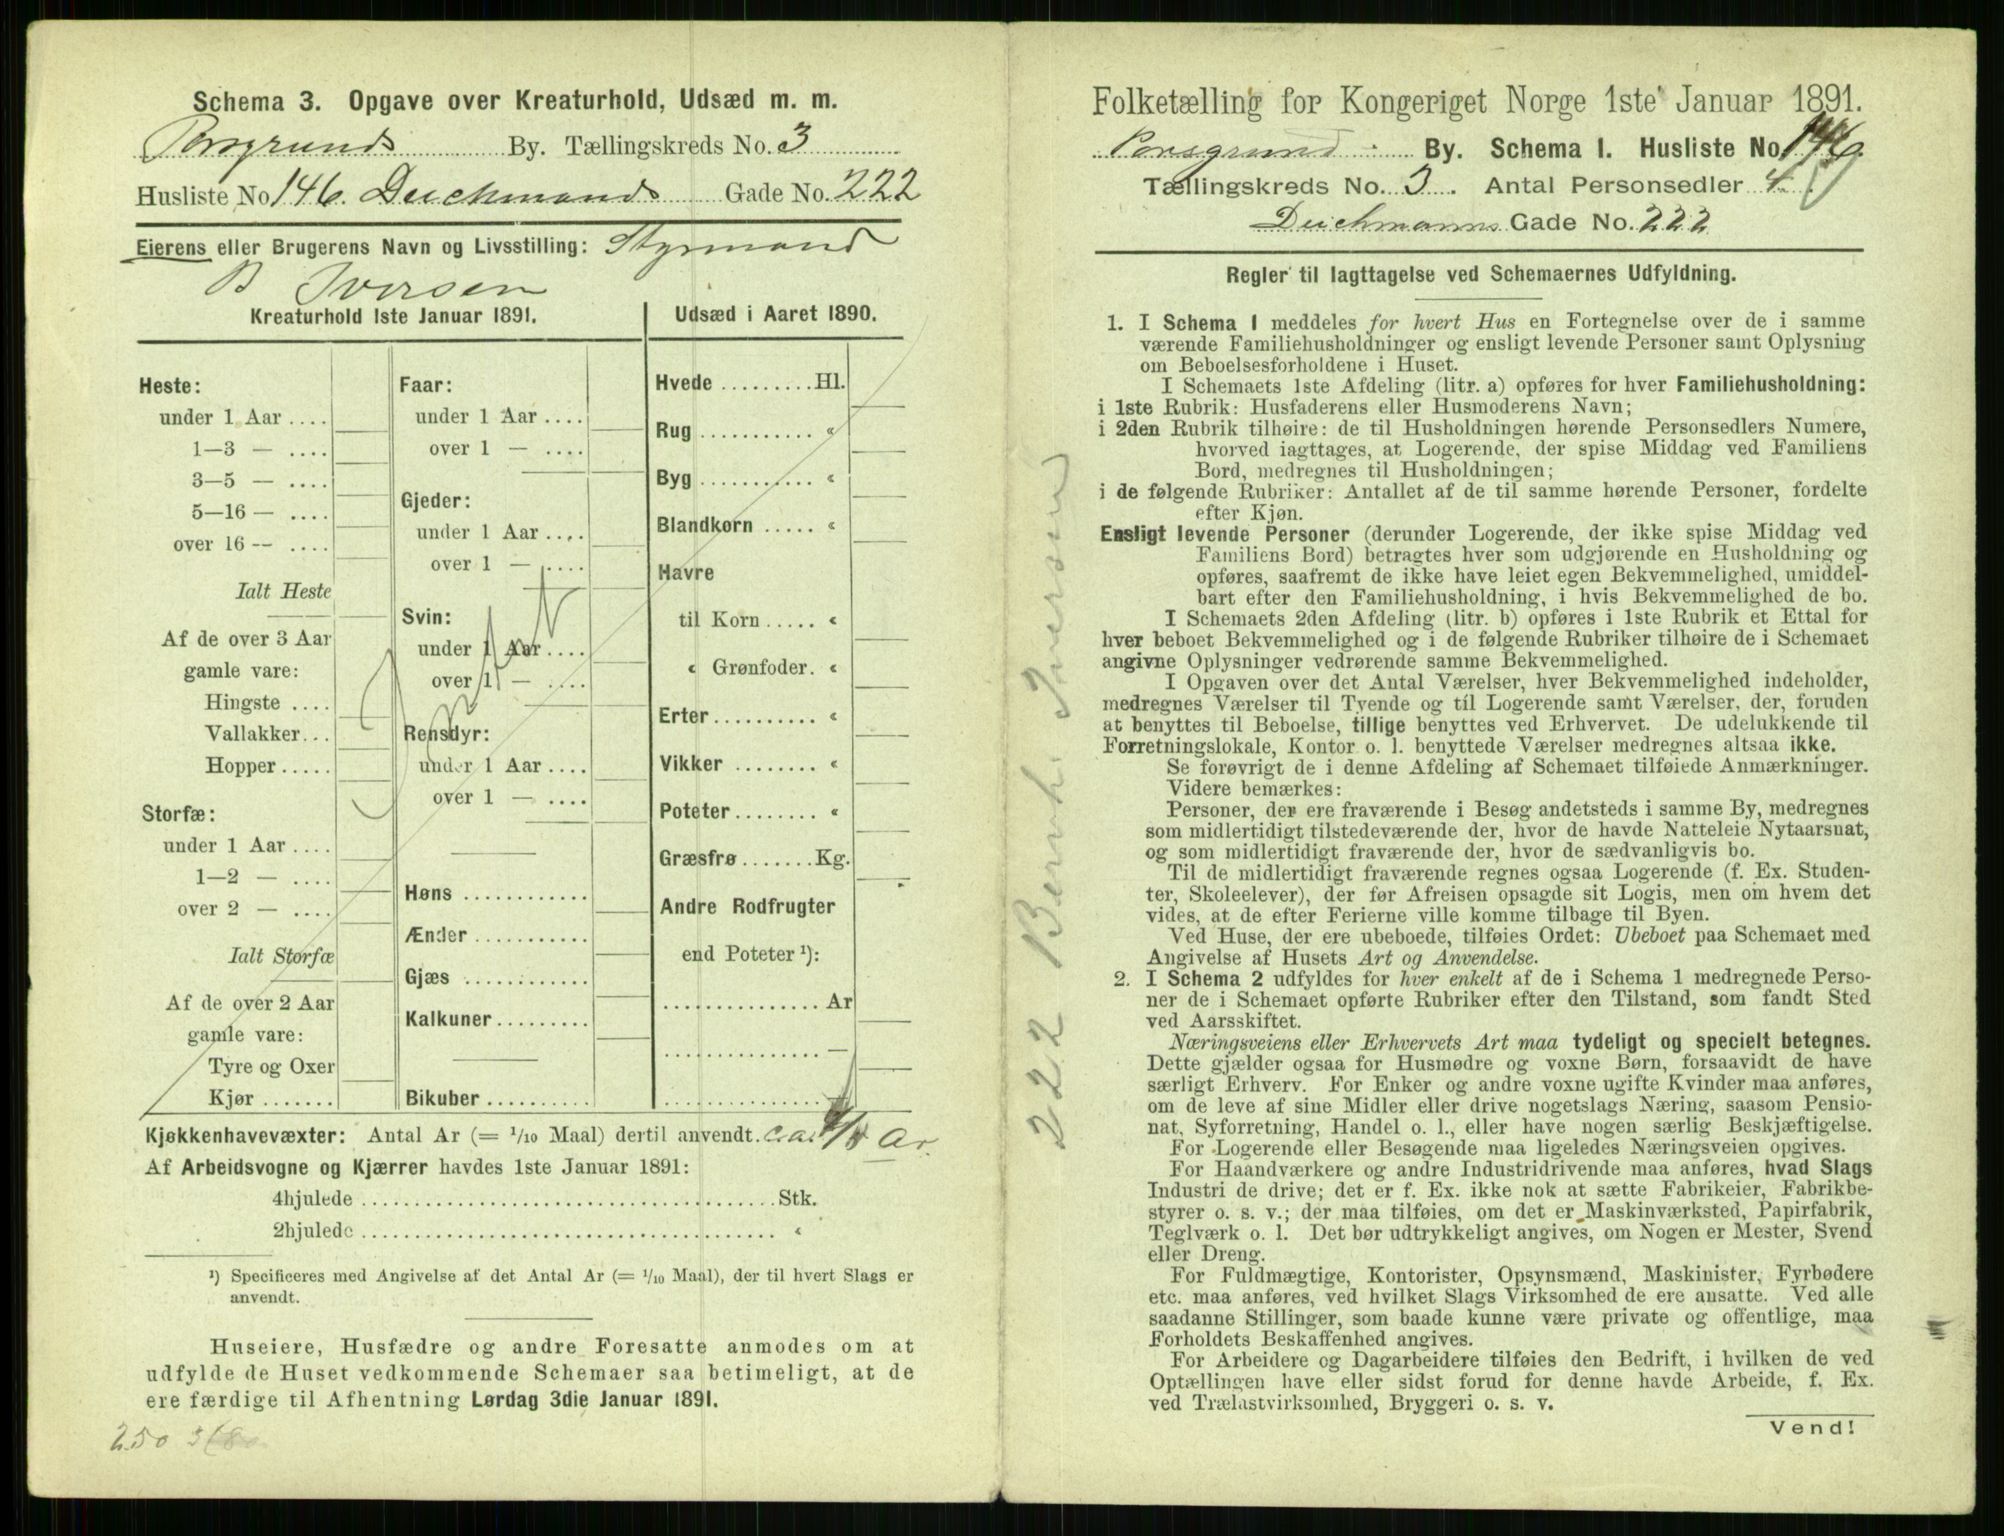 Schema 3. Opgave over Kreaturhold, Udsæd m. m.
Porsgrunds By. Tællingskreds No. 3
Husliste No 146. Deichmands Gade No. 222
Eierens eller Brugerens Navn og Livsstilling: Styrmand
B Iversen
Kreaturhold 1ste Januar 1891.
Heste:
under 1 Aar ....
1—3 — ....
3—5 — ....
5—16 — ....
over 16 — ....
Ialt Heste
Af de over 3 Aar
gamle vare:
Hingste ....
Vallakker...
Hopper .....
Storfæ:
under 1 Aar ....
1—2 — ....
over 2 — ....
Ialt Storfæ
Af de over 2 Aar
gamle vare:
Tyre og Oxer
Kjør .......
Faar:
under 1 Aar ....
over 1 — ....
Gjeder:
under 1 Aar ....
over 1 — ....
Svin:
under 1 Aar ....
over 1 — ....
Rensdyr:
under 1 Aar ....
over 1 — ....
Høns ............
Ænder ...........
Gjæs ............
Kalkuner.........
Bikuber ..........
Udsæd i Aaret 1890.
Hvede .........Hl.
Rug ........... «
Byg ........... «
Blandkorn ..... «
Havre
til Korn ..... «
« Grønfoder. «
Erter.......... «
Vikker ........ «
Poteter........ «
Græsfrø .......Kg.
Andre Rodfrugter
end Poteter ¹):
................ Ar
................ —
................
Kjøkkenhavevæxter: Antal Ar (= 1/10 Maal) dertil anvendt. ca. Ar.
Af Arbeidsvogne og Kjærrer havdes 1ste Januar 1891:
4hjulede ........................................ Stk.
2hjulede ........................................ «
¹) Specificeres med Angivelse af det Antal Ar (= 1/10 Maal), der til hvert Slags er
anvendt.
Huseiere, Husfædre og andre Foresatte anmodes om at
udfylde de Huset vedkommende Schemaer saa betimeligt, at de
ere færdige til Afhentning Lørdag 3die Januar 1891.
250
222 Bernh. Iversen
Folketælling for Kongeriget Norge 1ste Januar 1891.
Porsgrund By. Schema I. Husliste No. 146
Tællingskreds No. 3. Antal Personsedler 4
Deichmanns Gade No. 222
Regler til Iagttagelse ved Schemaernes Udfyldning.
1. I Schema 1 meddeles for hvert Hus en Fortegnelse over de i samme
værende Familiehusholdninger og ensligt levende Personer samt Oplysning
om Beboelsesforholdene i Huset.
I Schemaets 1ste Afdeling (litr. a) opføres for hver Familiehusholdning:
i 1ste Rubrik: Husfaderens eller Husmoderens Navn;
i 2den Rubrik tilhøire: de til Husholdningen hørende Personsedlers Numere,
hvorved iagttages, at Logerende, der spise Middag ved Familiens
Bord, medregnes til Husholdningen;
i de følgende Rubriker: Antallet af de til samme hørende Personer, fordelte
efter Kjøn.
Ensligt levende Personer (derunder Logerende, der ikke spise Middag ved
Familiens Bord) betragtes hver som udgjørende en Husholdning og
opføres, saafremt de ikke have leiet egen Bekvemmelighed, umiddel-
bart efter den Familiehusholdning, i hvis Bekvemmelighed de bo.
I Schemaets 2den Afdeling (litr. b) opføres i 1ste Rubrik et Ettal for
hver beboet Bekvemmelighed og i de følgende Rubriker tilhøire de i Schemaet
angivne Oplysninger vedrørende samme Bekvemmelighed.
I Opgaven over det Antal Værelser, hver Bekvemmelighed indeholder,
medregnes Værelser til Tyende og til Logerende samt Værelser, der, foruden
at benyttes til Beboelse, tillige benyttes ved Erhvervet. De udelukkende til
Forretningslokale, Kontor o. l. benyttede Værelser medregnes altsaa ikke.
Se forøvrigt de i denne Afdeling af Schemaet tilføiede Anmærkninger.
Videre bemærkes:
Personer, der ere fraværende i Besøg andetsteds i samme By, medregnes
som midlertidigt tilstedeværende der, hvor de havde Natteleie Nytaarsnat,
og som midlertidigt fraværende der, hvor de sædvanligvis bo.
Til de midlertidigt fraværende regnes ogsaa Logerende (f. Ex. Studen-
ter, Skoleelever), der før Afreisen opsagde sit Logis, men om hvem det
vides, at de efter Ferierne ville komme tilbage til Byen.
Ved Huse, der ere ubeboede, tilføies Ordet: Ubeboet paa Schemaet med
Angivelse af Husets Art og Anvendelse.
2. I Schema 2 udfyldes for hver enkelt af de i Schema 1 medregnede Perso-
ner de i Schemaet opførte Rubriker efter den Tilstand, som fandt Sted
ved Aarsskiftet.
Næringsveiens eller Erhvervets Art maa tydeligt og specielt betegnes.
Dette gjælder ogsaa for Husmødre og voxne Børn, forsaavidt de have
særligt Erhverv. For Enker og andre voxne ugifte Kvinder maa anføres,
om de leve af sine Midler eller drive nogetslags Næring, saasom Pensio-
nat, Syforretning, Handel o. l., eller have nogen særlig Beskjæftigelse.
For Logerende eller Besøgende maa ligeledes Næringsveien opgives.
For Haandværkere og andre Industridrivende maa anføres, hvad Slags
Industri de drive; det er f. Ex. ikke nok at sætte Fabrikeier, Fabrikbe-
styrer o. s. v.; der maa tilføies, om det er Maskinværksted, Papirfabrik,
Teglværk o. l. Det bør udtrykkeligt angives, om Nogen er Mester, Svend
eller Dreng.
For Fuldmægtige, Kontorister, Opsynsmænd, Maskinister, Fyrbødere
etc. maa anføres, ved hvilket Slags Virksomhed de ere ansatte. Ved alle
saadanne Stillinger, som baade kunne være private og offentlige, maa
Forholdets Beskaffenhed angives.
For Arbeidere og Dagarbeidere tilføies den Bedrift, i hvilken de ved
Optællingen have eller sidst forud for denne havde Arbeide, f. Ex.
ved Trælastvirksomhed, Bryggeri o. s. v.
Vend!